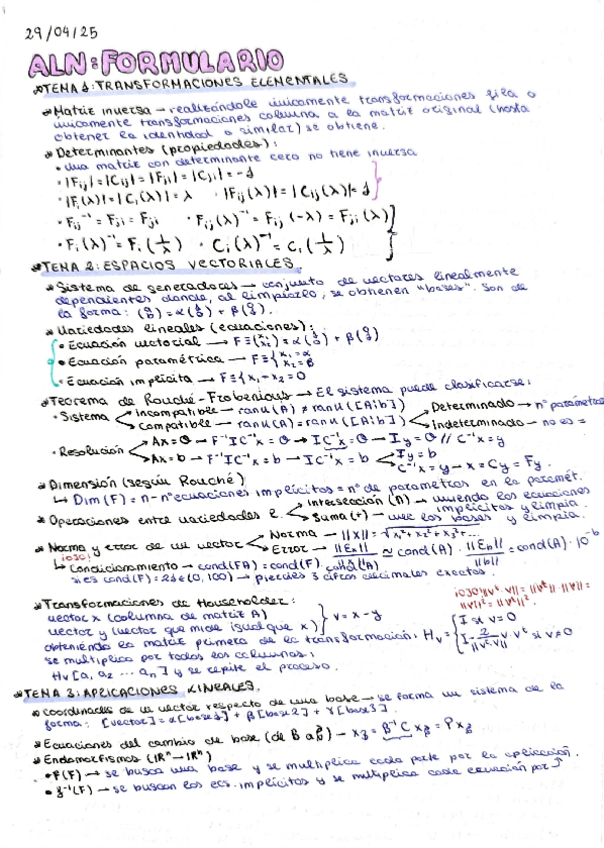 29/04/25
ALN: FORMULARIO
TEMA 1: TRANSFORMACIONES ELEMENTALES
* Matriz inversa — realizándole únicamente transformaciones fila o
únicamente transformaciones columna a la matriz original (hasta
obtener la identidad o similar) se obtiene.
* Determinantes (propiedades):
• Una matriz con determinante cero no tiene inversa
• |Fij| = |Cij| = |Fji| = |Cji| = -1
• |Fi(λ)| = |Ci(λ)| = λ • |Fij(λ)| = |Cij(λ)| = 1
• Fij⁻¹ = Fji = Fij • Fij(λ)⁻¹ = Fij(-λ) = Fji(λ)
• Fi(λ)⁻¹ = Fi(1/λ) • Ci(λ)⁻¹ = Ci(1/λ)
* TEMA 2: ESPACIOS VECTORIALES
* Sistema de generadores — conjunto de vectores linealmente
dependientes donde, al limpiarlo, se obtienen "bases". Son de
la forma:
* Variedades lineales (ecuaciones):
• Ecuación vectorial → F ≡
• Ecuación paramétrica — F ≡ { x₁ = α x₂ = β
• Ecuación implícita — F ≡ { x₁ - x₂ = 0
* Teorema de Rouché-Frobenious — El sistema puede clasificarse:
• Sistema Incompatible — ranu(A) ≠ ranu([A:b])
Compatible — ranu(A) = ranu([A:b]) Determinado → nº parámetros
Indeterminado — no es =
• Resolución Ax = θ → F⁻¹IC⁻¹x = θ → IC⁻¹x = θ → Iy = θ // C⁻¹x = y
Ax = b → F⁻¹IC⁻¹x = b → IC⁻¹x = b Iy = b
C⁻¹x = y → x = Cy = Fy.
* Dimensión (según Rouché)
↳ Dim(F) = n - nº ecuaciones implícitas = nº de parámetros en la paramét.
* Operaciones entre variedades l. Intersección (∩) — uniendo las ecuaciones
implícitas y limpia.
Suma (+) — une las bases y limpia.
* Norma y error de un vector Norma — ||x|| = √x₁² + x₂² + x₃² + ...
Error → ||Eₙ|| ≈ cond(A) · ||Eb||/||b|| = cond(A) · 10⁻⁶
¡OJO!
↳ Condicionamiento → cond(FA) = cond(F) · cond(A)
si es cond(F) = 28 ∈ (0,100) → pierdes 3 cifras decimales exactas.
* Transformaciones de Householder:
vector x (columna de matriz A)
vector y (vector que mide igual que x) } v = x - y
obteniendo la matriz primera de la transformación:
se multiplica por todas las columnas:
Hv [a₁ a₂ ... aₙ] y se repite el proceso.
Hv = { I si v = 0
I - 2/||vᵗ·v|| v·vᵗ si v ≠ 0
* TEMA 3: APLICACIONES LINEALES.
* coordinadas de un vector respecto de una base → se forma un sistema de la
forma: [vector] = α[base1] + β[base2] + γ[base3].
* Ecuaciones del cambio de base
* Endomorfismos (ℝⁿ → ℝⁿ)
• f(F) → se busca una base y se multiplica cada parte por la aplicación.
• f⁻¹(F) → se buscan las ecs. implícitas y se multiplica cada ecuación por f